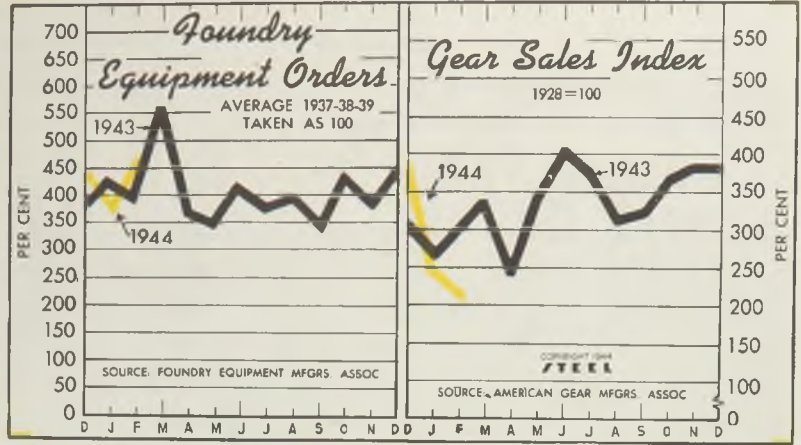 Foundry
Equipment Orders
AVERAGE 1937-38-39
TAKEN AS 100
700
650
600
550
500
450
400
350
300
250
200
150
100
50
0
PER CENT
1943
1944
SOURCE: FOUNDRY EQUIPMENT MFGRS. ASSOC
D J F M A M J J A S O N D
Gear Sales Index
1928=100
1944
1943
550
500
450
400
350
300
250
200
150
100
0
PER CENT
COPYRIGHT 1944
STEEL
SOURCE: AMERICAN GEAR MFGRS. ASSOC
D J F M A M J J A S O N D